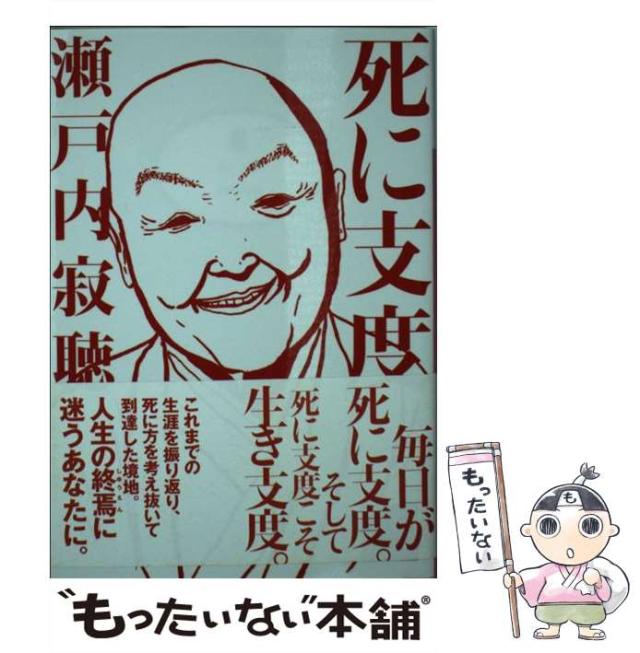 死に支度
瀬戸内寂聴
毎日が
死に支度。
そして
死に支度こそ
生き支度。
これまでの
生涯を振り返り、
死に方を考え抜いて
到達した境地。
人生の終焉に
しゅうえん
迷うあなたに。
も
もったいない
“もったいない”本舗®